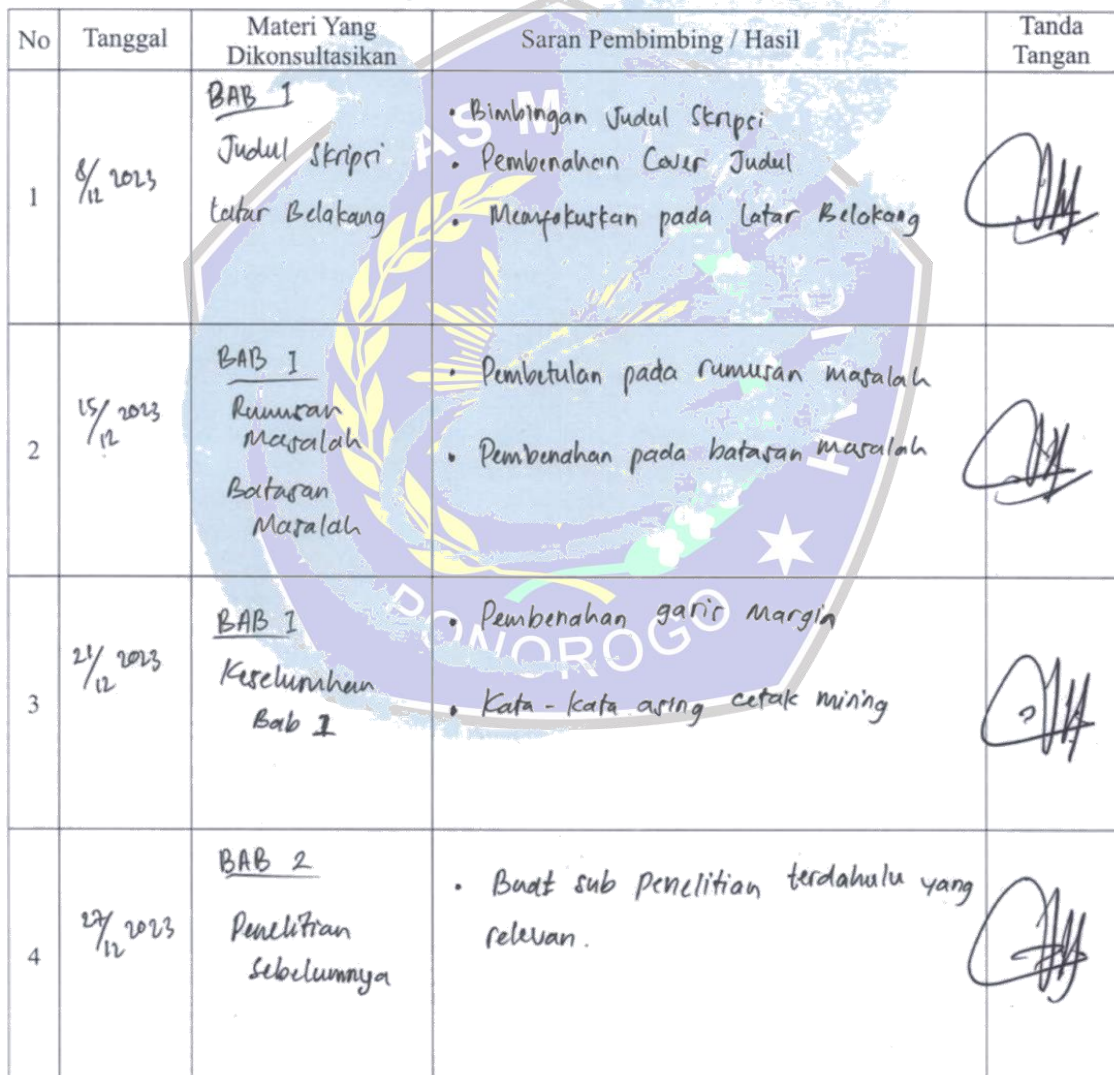 No Tanggal Materi Yang Dikonsultasikan Saran Pembimbing / Hasil Tanda Tangan
1 8/12 2023
BAB 1
Judul Skripsi
Latar Belakang
• Bimbingan Judul Skripsi
• Pembenahan Cover Judul
• Memfokuskan pada Latar Belakang
2 15/12 2023
BAB I
Rumusan
Masalah
Batasan
Masalah
• Pembetulan pada rumusan masalah
• Pembenahan pada batasan masalah
3 21/12 2023
BAB I
Keseluruhan
Bab 1
• Pembenahan garis Margin
• Kata-kata asing cetak miring
4 27/12 2023
BAB 2
Penelitian
Sebelumnya
• Buat sub penelitian terdahulu yang
relevan.
AS M
H
PONOROGO